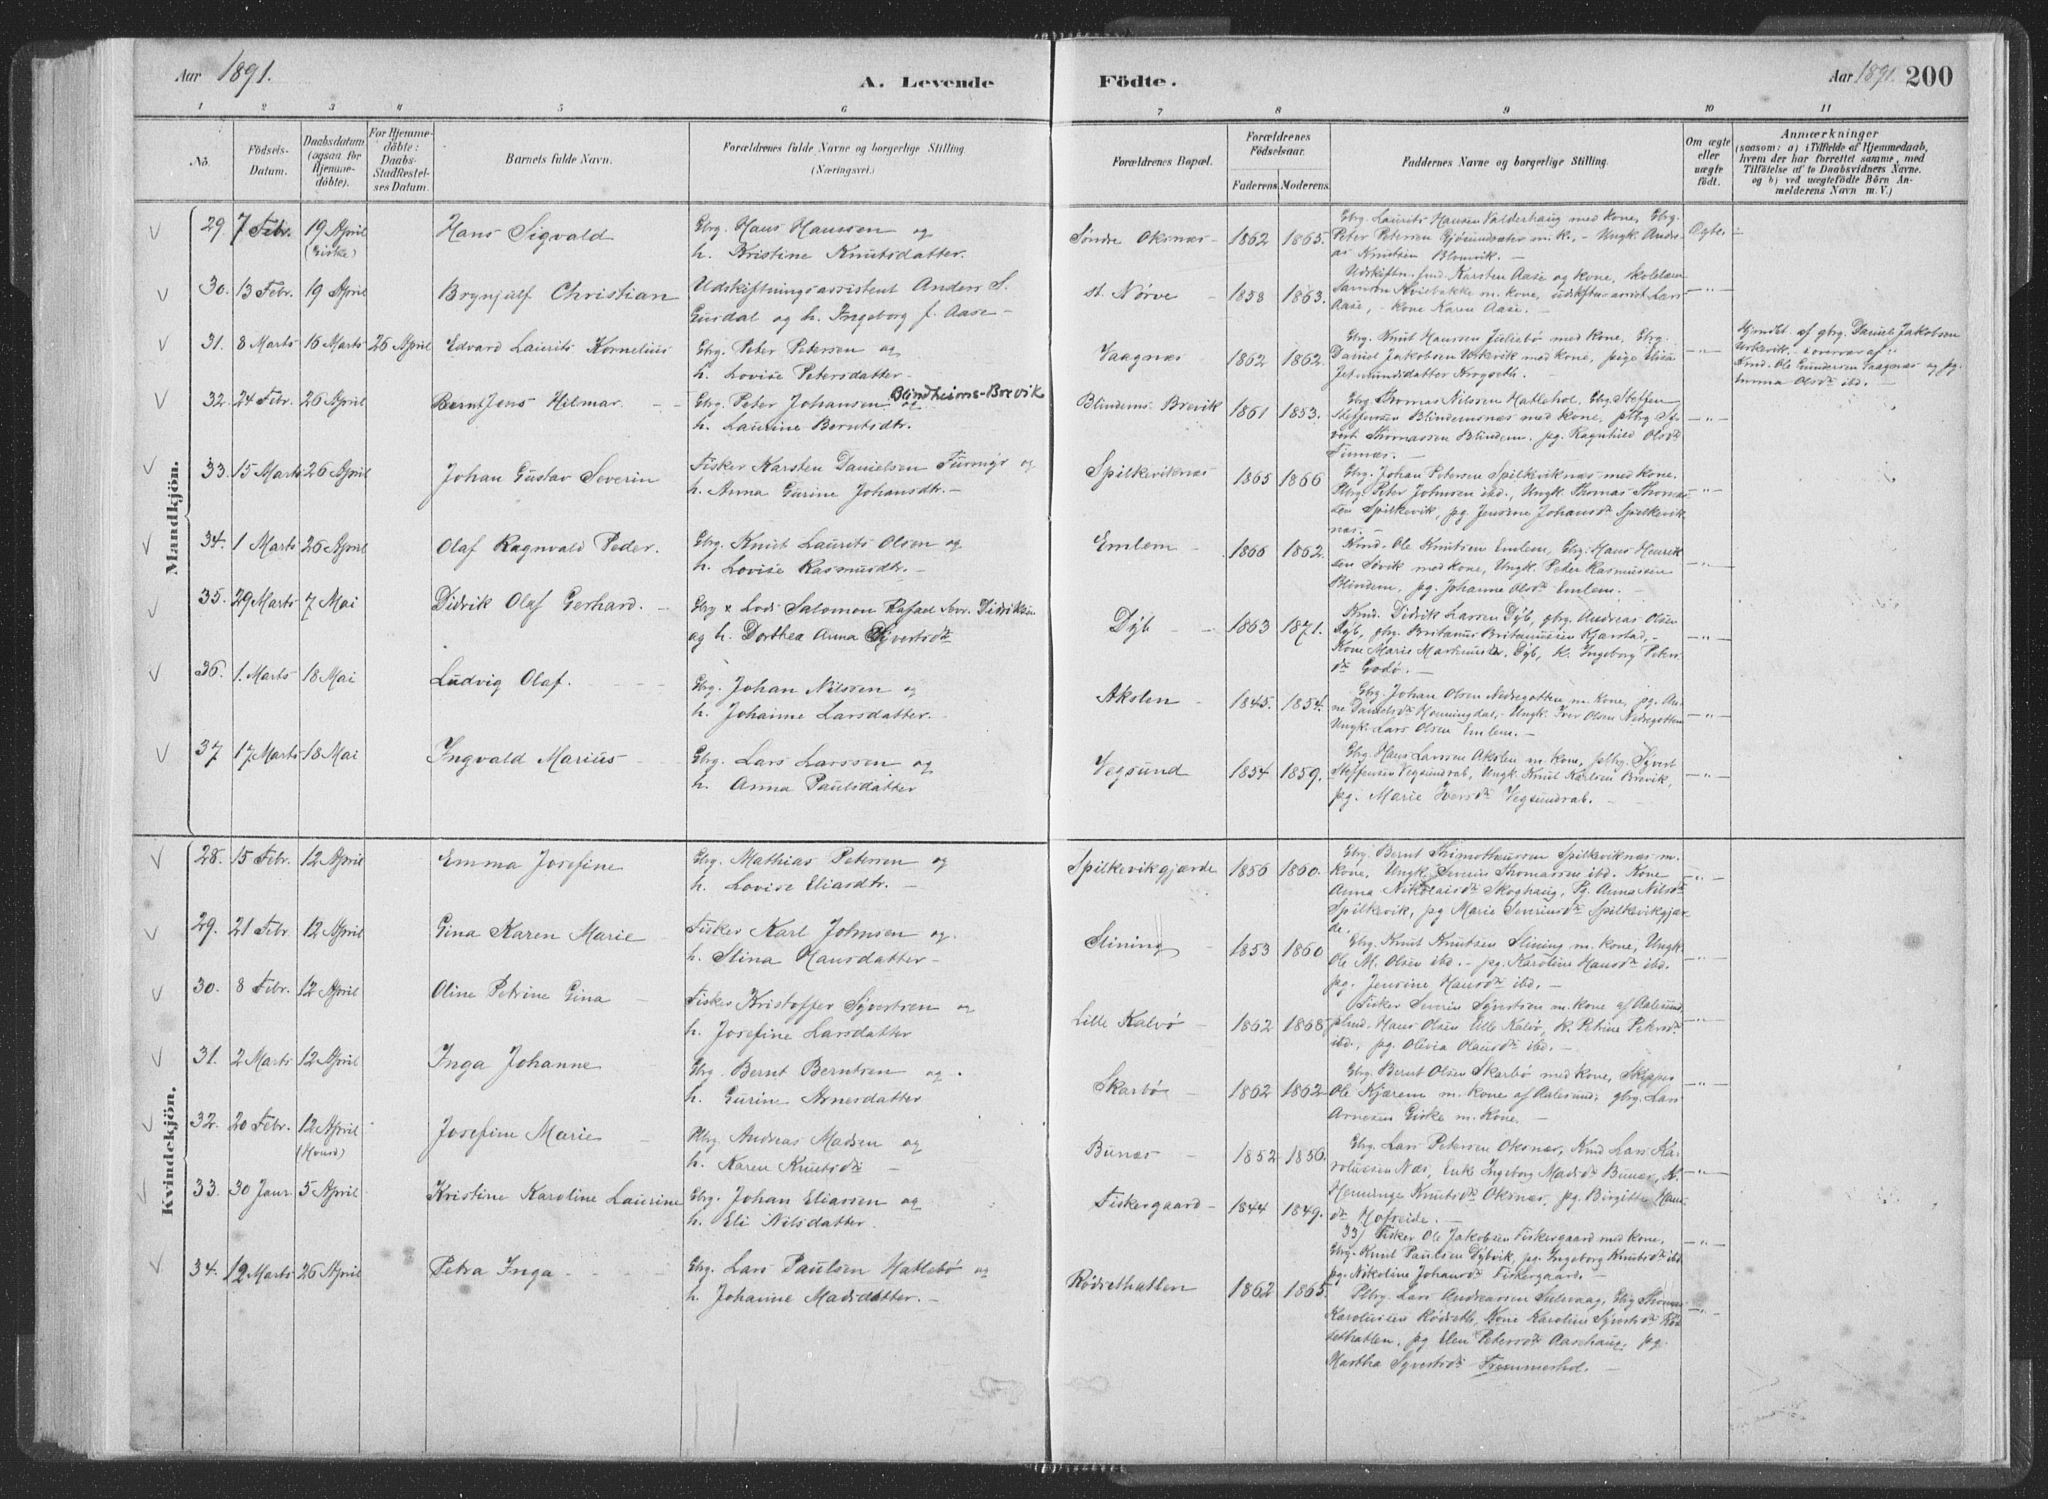 Aar 1891.
A. Levende
Födte.
Aar 1891. 200
1 2 3 4 5 6 7 8 9 10 11
No. Födsels-Datum. Daabsdatum (ogsaa for Hjemmedöbte). For Hjemmedöbte: Daabs-Stadfæstelses Datum. Barnets fulde Navn. Forældrenes fulde Navne og borgerlige Stilling. (Næringsvei.) Forældrenes Bopæl. Forældrenes Födselsaar. Faderens. Moderens. Faddernes Navne og borgerlige Stilling. Om ægte eller uægte födt. Anmærkninger (saasom: a) i Tilfælde af Hjemmedaab, hvem der har forrettet samme, med Tilföielse af to Daabsvidners Navne, og b) ved uægtefödte Börn Anmelderens Navn m. V.)
Mandkjön.
29. 7 Febr. 19 April (Giske) Hans Sigvald Gbrg. Hans Hanssen og
h. Kristine Knutsdatter. Søndre Oksnæs 1862 1865. Gbrg. Laurits Hansen Valderhaug med kone, Gbrg.
Peter Petersen Gjøsundsæter m. k., Ungk. Andreas Knutsen Blomvik. Ægte.
30. 13 Febr. 19 April Brynjulf Christian Udskiftningsassistent Anders S.
Gusdal og h. Ingeborg f. Aase st. Nørve 1858 1863. Karsten Aase og kone,
m. kone, Lars
Aase, kone Karen Aase. — " —
31. 8 Marts 16 Marts 26 April Edvard Laurits Kornelius Gbrg. Peter Petersen og
h. Lovise Petersdatter. Vaagnæs 1862 1862. Gbrg. Knut Hansen Juliebø med kone, Gbrg.
Daniel Jakobsen Urkevik med kone, pige Elisa
Krogseth. — " — Hjmdbt. af gbrg. Daniel Jakobsen
Urkevik i overvær af
Kmd. Ole Gundersen Vaagnæs og pg.
Emma Olsdr ibd.
32. 24 Febr. 26 April Bernt Jens Hilmar. Gbrg. Peter Johansen og Blindheims-Brevik
h. Laurine Berntsdtr. Blindems Brevik 1861 1853. Gbrg. Thomas Nilssen Hatlehol, Gbrg. Steffen
Steffensen Blindemsnæs med kone, Sivert Thomassen Blindem. pg. Ragnhild Olsdr
Tinnæs. — " —
33. 15 Marts 26 April Johan Gustav Severin Fisker Karsten Danielsen Furmyr og
h. Anna Gurine Johansdtr. Spilkeviknæs 1865 1866 Gbrg. Johan Petersen Spilkeviknæs med kone.
Peter Johnsen ibd., Ungk. Thomas Thomassen Spilkevik, pg. Jensine Johansdr Spilkeviknæs. — " —
34. 1 Marts 26 April Olaf Ragnvald Peder. Gbrg. Knut Laurits Olsen og
h. Lovise Rasmusdtr. Emlem 1866 1862. Kmd. Ole Knutsen Emlem, Gbrg. Hans Henriksen Søvik med kone, Ungk. Peder Rasmussen
Blindem, pg. Johanne Olsdr Emlem. — " —
35. 29 Marts 7 Mai Didrik Olaf Gerhard. Gbrg x Lods Salomon Rafael Sevr. Didriksen
og h. Dorthea Anna Syvertsdr Dyb 1863 1871. Kmd. Didrik Larsen Dyb, gbrg. Andreas Olsen
Dyb, gbrg. Britanus Britanussen Kjærstad,
Kone Marie Dyb, k. Ingeborg Petersdr Godø. — " —
36. 1. Marts 18 Mai Ludvig Olaf. Gbrg. Johan Nilssen og
h. Johanne Larsdatter. Akslen 1845. 1854. Gbrg. Johan Olsen Nedregotten m. kone, pg. Ane Danielsdr Honningdal, Ungk. Iver Olsen Nedregotten
Ungk. Lars Olsen Emlem. — " —
37 17 Marts 18 Mai Ingvald Marius Gbrg. Lars Larssen og
h. Anna Paulsdatter Vegsund 1854 1859. Gbrg. Hans Larssen Akslen m. kone, Syvert
Steffensen Vegsundrab, Ungk. Knut Karlsen Brevik,
pg. Marie Iversdr Vegsundrab. — " —
Kvindekjön.
28. 15 Febr. 12 April Emma Josefine Gbrg. Mathias Petersen og
h. Lovise Eliasdtr. Spilkevikgjærde 1856 1860. Gbrg. Bernt Thimotheussen Spilkeviknæs m.
kone, Ungk. Severin Thomassen ibd. Kone
Anna Nikolaisdr Skoghaug, Pg. Anna Nilsdr
Spilkevik, pg Marie Severinsdr Spilkevikgjærde. — " —
29. 21 Febr. 12 April Gina Karen Marie Fisker Karl Johnsen og
h. Stina Hansdatter Slining 1853 1860 Gbrg. Knut Knutsen Slining m. kone, Ungk.
Ole M. Olsen ibd. pg. Karoline Hansdr ibd.
pg. Jensine Hansdr ibd. — " —
30. 8 Febr. 12 April Oline Petrine Gina Fisker Kristoffer Syvertsen og
h. Josefine Larsdatter Lille Kalvø 1862 1868 Fisker Severin Syvertsen m. kone af Aalesund,
Hans Olsen Lille Kalvø, k. Petine Petersdr
ibd., pg. Olivia Olausdr ibd. — " —
31. 2 Marts 12 April Inga Johanne Gbrg. Bernt Berntsen og
h. Gurine Arnesdatter Skarbø 1862 1862 Gbrg. Bernt Olsen Skarbø med kone, Skipper
Ole Kjærem m. kone af Aalesund; gbrg. Lars
Arnesen Giske m. kone. — " —
32. 20 Febr. 12 April Josefine Marie Andreas Madsen og
h. Karen Knutsdr Bunæs 1852 1856. Gbrg. Lars Petersen Oksnæs, Kmd Lars Karolussen Næs, Enke Ingeborg Madsdr Bunæs, K.
Knutsdr Oksnæs, pg. Birgitte Hansdr Hofseide. — " —
33. 30 Janr. 5 April Kristine Karoline Laurine Gbrg. Johan Eliassen og
h. Eli Nilsdatter. Fiskergaard 1844 1849. 33) Fisker Ole Jakobsen Fiskergaard med kone,
Gbrg. Knut Paulsen Dybvik, pg. Ingeborg Knutsdr ibd
pg. Nikoline Johansdr Fiskergaard. — " —
34. 12 Marts 26 April Petra Inga Gbrg. Lars Paulsen Hatlebø og
h. Johanne Madsdatter. Rødsethatlen 1862 1865. Lars Andreassen Sulevaag, Gbrg Thomas
Karolussen Rødseth, Kone Karoline Syvertsdr Rødsethatlen, pg Elen Petersdr Aarhaug, pg.
Martha Syvertsdr Fremmerhol. — " —